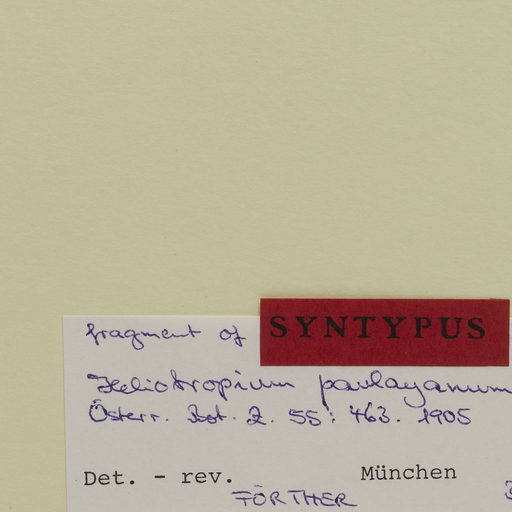 fragment of SYNTYPUS
Heliotropium paulayanum
Österr. Bot. Z. 55: 463. 1905
Det. - rev. München
FÖRTHER